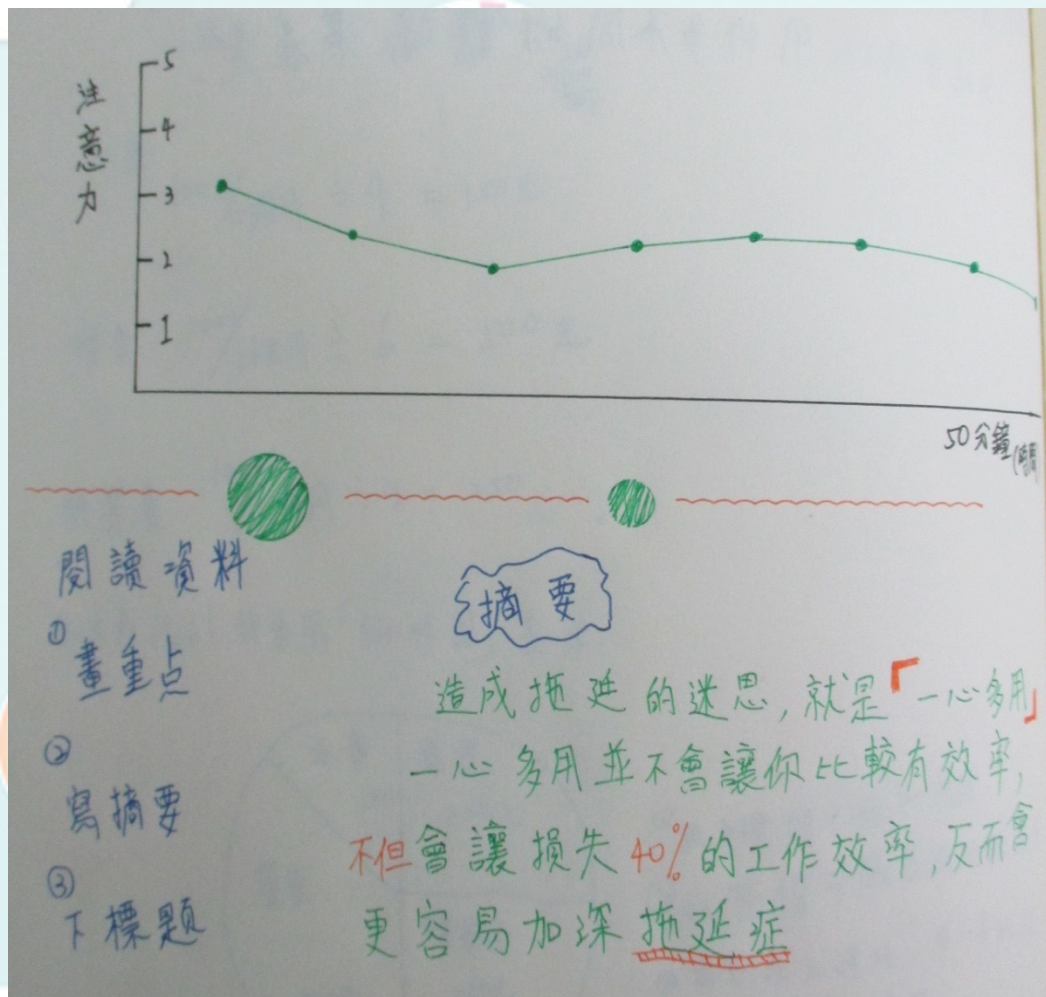 注意力
5
4
3
2
1
50分鐘
閱讀資料
①
畫重点
②
寫摘要
③
下標題
摘要
造成拖延的迷思,就是「一心多用」
一心多用並不會讓你比較有效率,
不但會讓損失40%的工作效率,反而會
更容易加深拖延症